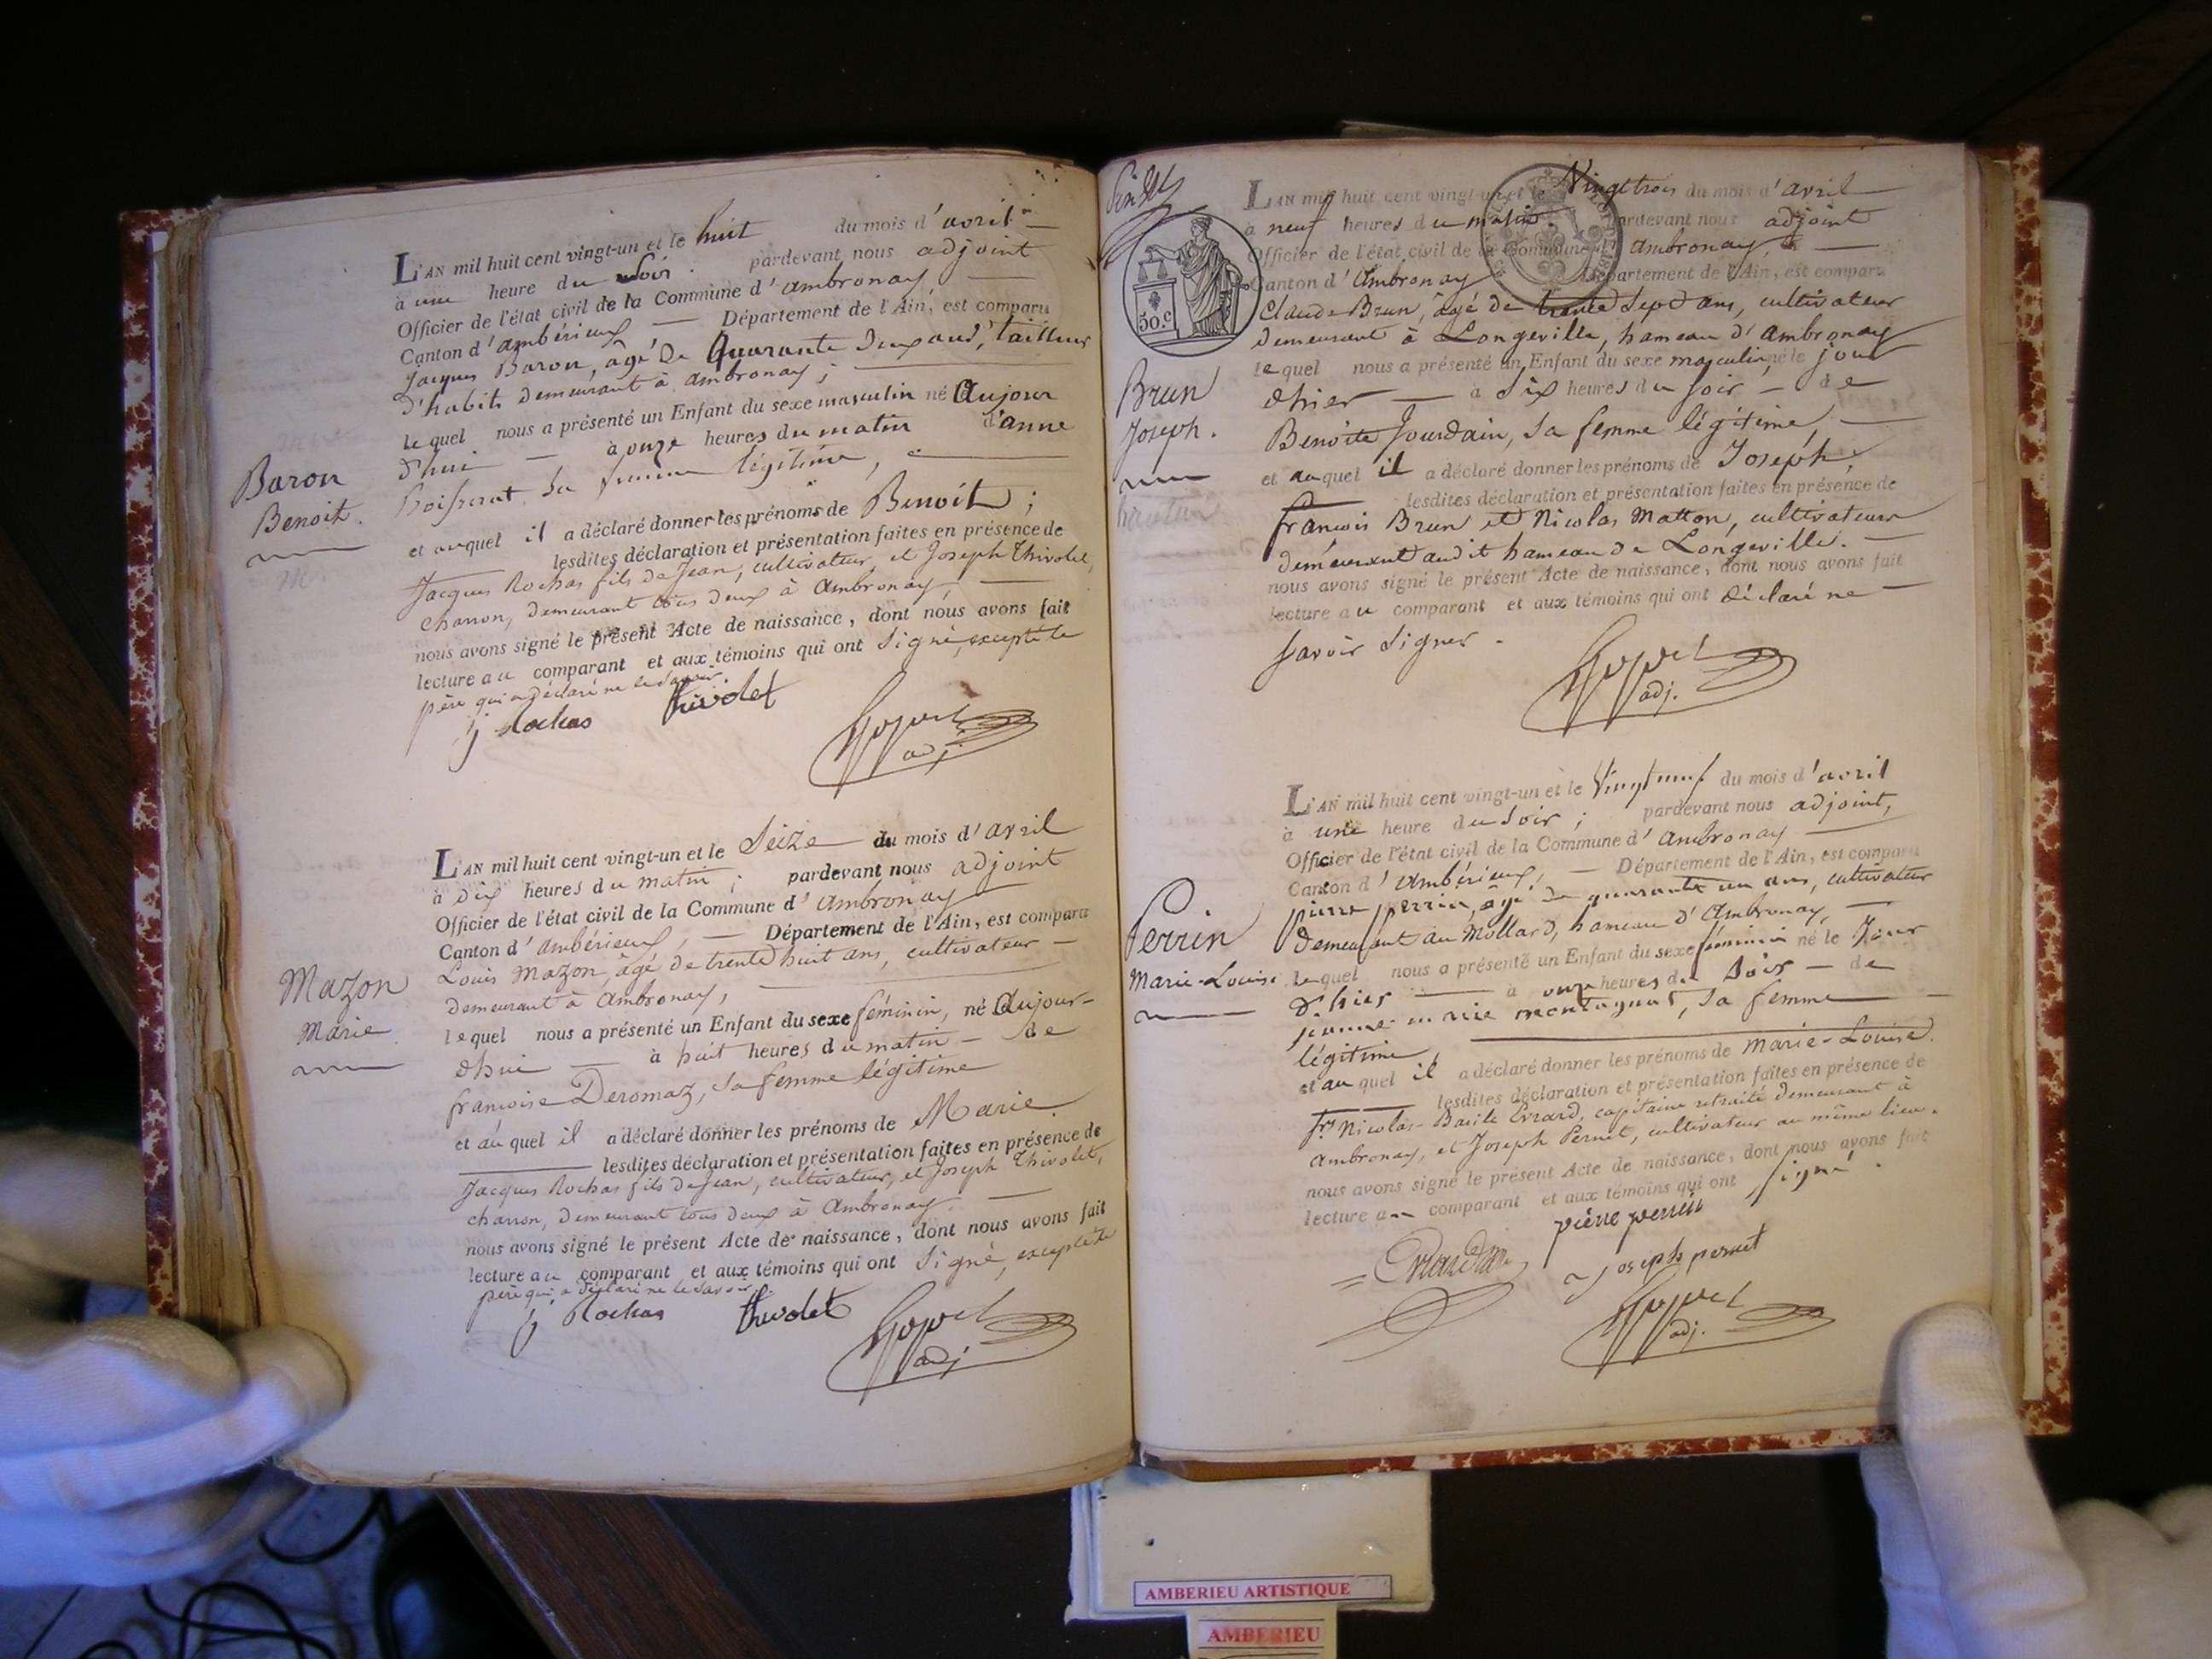 L'AN mil huit cent vingt-un et le huit du mois d'avril
à une heure du soir. pardevant nous adjoint
Officier de l'état civil de la Commune d'ambronay
Canton d'ambérieux Département de l'Ain, est comparu
Jacques Baron, âgé de Quarante deux ans, tailleur
d'habits demeurant à ambronay;
lequel nous a présenté un Enfant du sexe masculin né Aujour
d'hui à onze heures du matin d'anne
sa femme légitime,
et auquel il a déclaré donner les prénoms de Benoit;
lesdites déclaration et présentation faites en présence de
Jacques Rochas fils de Jean, cultivateur, et Joseph Thivolet,
charron, demeurant tous deux à Ambronay,
nous avons signé le présent Acte de naissance, dont nous avons fait
lecture au comparant et aux témoins qui ont signé, excepté le
père qui a déclaré ne le savoir.
j Rochas Thivolet
adj.
Baron
Benoit.
L'AN mil huit cent vingt-un et le Seize du mois d'avril
à dix heures du matin; pardevant nous adjoint
Officier de l'état civil de la Commune d'ambronay
Canton d'ambérieux, Département de l'Ain, est comparu
Louis Mazon, âgé de trente huit ans, cultivateur
demeurant à Ambronay,
lequel nous a présenté un Enfant du sexe féminin, né Aujour-
dhui à huit heures du matin de
francoise Deromaz, sa femme légitime
et au quel il a déclaré donner les prénoms de Marie.
lesdites déclaration et présentation faites en présence de
Jacques Rochas fils de Jean, cultivateur, et Joseph Thivolet,
charron, demeurant tous deux à Ambronay,
nous avons signé le présent Acte de naissance, dont nous avons fait
lecture au comparant et aux témoins qui ont signé, excepté le
père qui a déclaré ne le savoir
j Rochas Thivolet
adj
Mazon
Marie
50.c
L'AN mil huit cent vingt-un et le Vingt trois du mois d'avril
à neuf heures du matin pardevant nous adjoint
Officier de l'état civil de la Commune d'ambronay,
Canton d'Ambronay Département de l'Ain, est comparu
Claude Brun, âgé de trente sept ans, cultivateur
demeurant à Longeville, hameau d'ambronay
lequel nous a présenté un Enfant du sexe masculin, né le jour
dhier à Six heures du soir de
Benoite Jourdain, sa femme légitime,
et auquel il a déclaré donner les prénoms de Joseph,
lesdites déclaration et présentation faites en présence de
francois Brun et Nicolas Matton, cultivateurs
demeurant audit hameau de Longeville.
nous avons signé le présent Acte de naissance, dont nous avons fait
lecture au comparant et aux témoins qui ont déclaré ne
savoir signer.
adj.
Brun
Joseph.
L'AN mil huit cent vingt-un et le Vingt neuf du mois d'avril
à une heure du soir; pardevant nous adjoint,
Officier de l'état civil de la Commune d'ambronay
Canton d'ambérieux, Département de l'Ain, est comparu
pierre perrin, âgé de quarante un ans, cultivateur
demeurant au Mollard, hameau d'Ambronay,
lequel nous a présenté un Enfant du sexe féminin né le Jour
d'hier à onze heures du soir de
jeanne marie montagnat, sa femme
légitime
et au quel il a déclaré donner les prénoms de Marie-Louise.
lesdites déclaration et présentation faites en présence de
frs Nicolas-Basile Evrard, capitaine retraité demeurant à
Ambronay, et Joseph Pernet, cultivateur au même lieu.
nous avons signé le présent Acte de naissance, dont nous avons fait
lecture au comparant et aux témoins qui ont signé.
piêrre perrin
joseph pernet
adj.
Perrin
Marie-Louise
AMBERIEU ARTISTIQUE
AMBERIEU